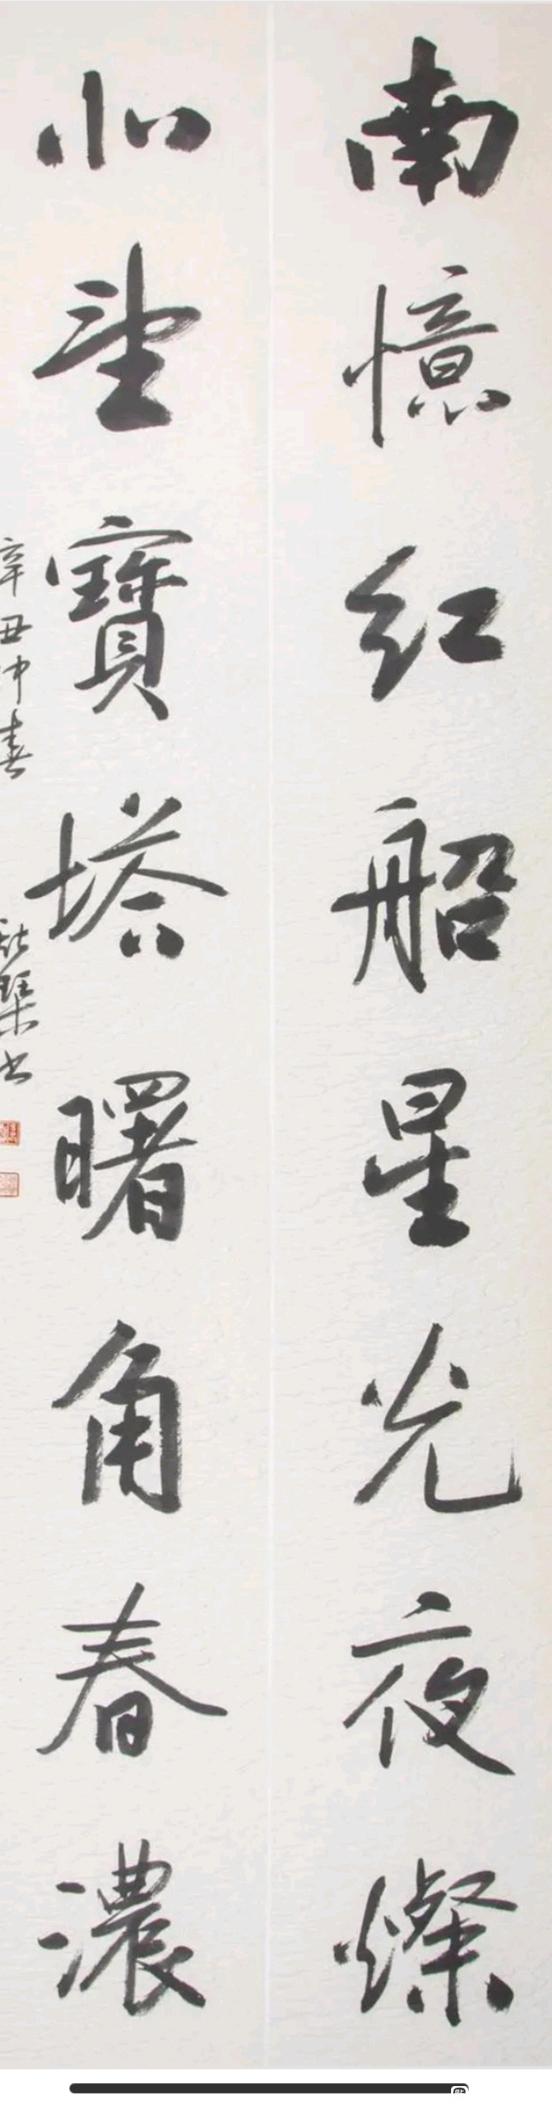 南憶红船星光夜燦
北望寶塔曙角春濃
辛丑仲春
琹书